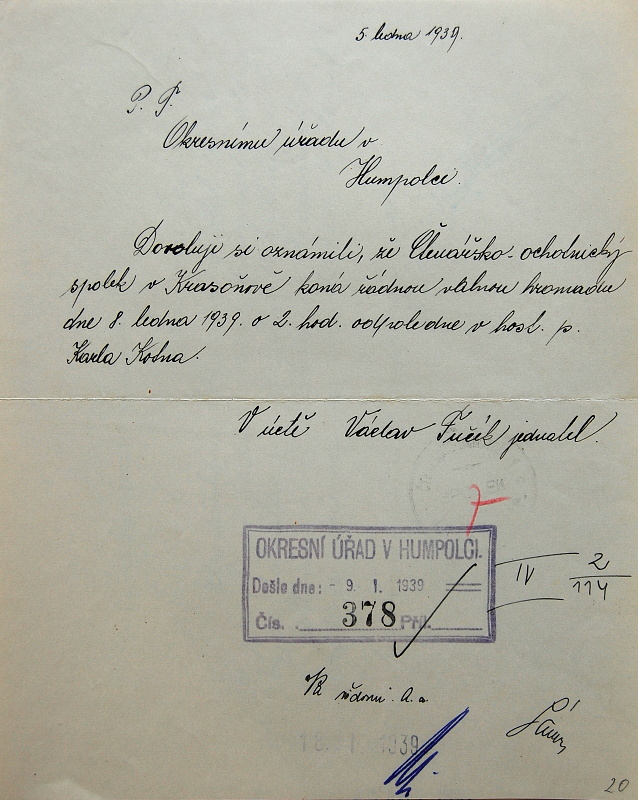 5. ledna 1939.
P. T.
Okresnímu úřadu v
Humpolci.
Dovoluji si oznámiti, že Čtenářsko-ochotnický
spolek v Krasoňově koná řádnou valnou hromadu
dne 8. ledna 1939. o 2. hod. odpoledne v host. p.
Karla Kotna.
V úctě Václav Fučík jednatel.
7
OKRESNÍ ÚŘAD V HUMPOLCI.
Došlo dne: - 9. 1. 1939
Čís. 378 Příl.
IV 2
114
a. a.
1939
20